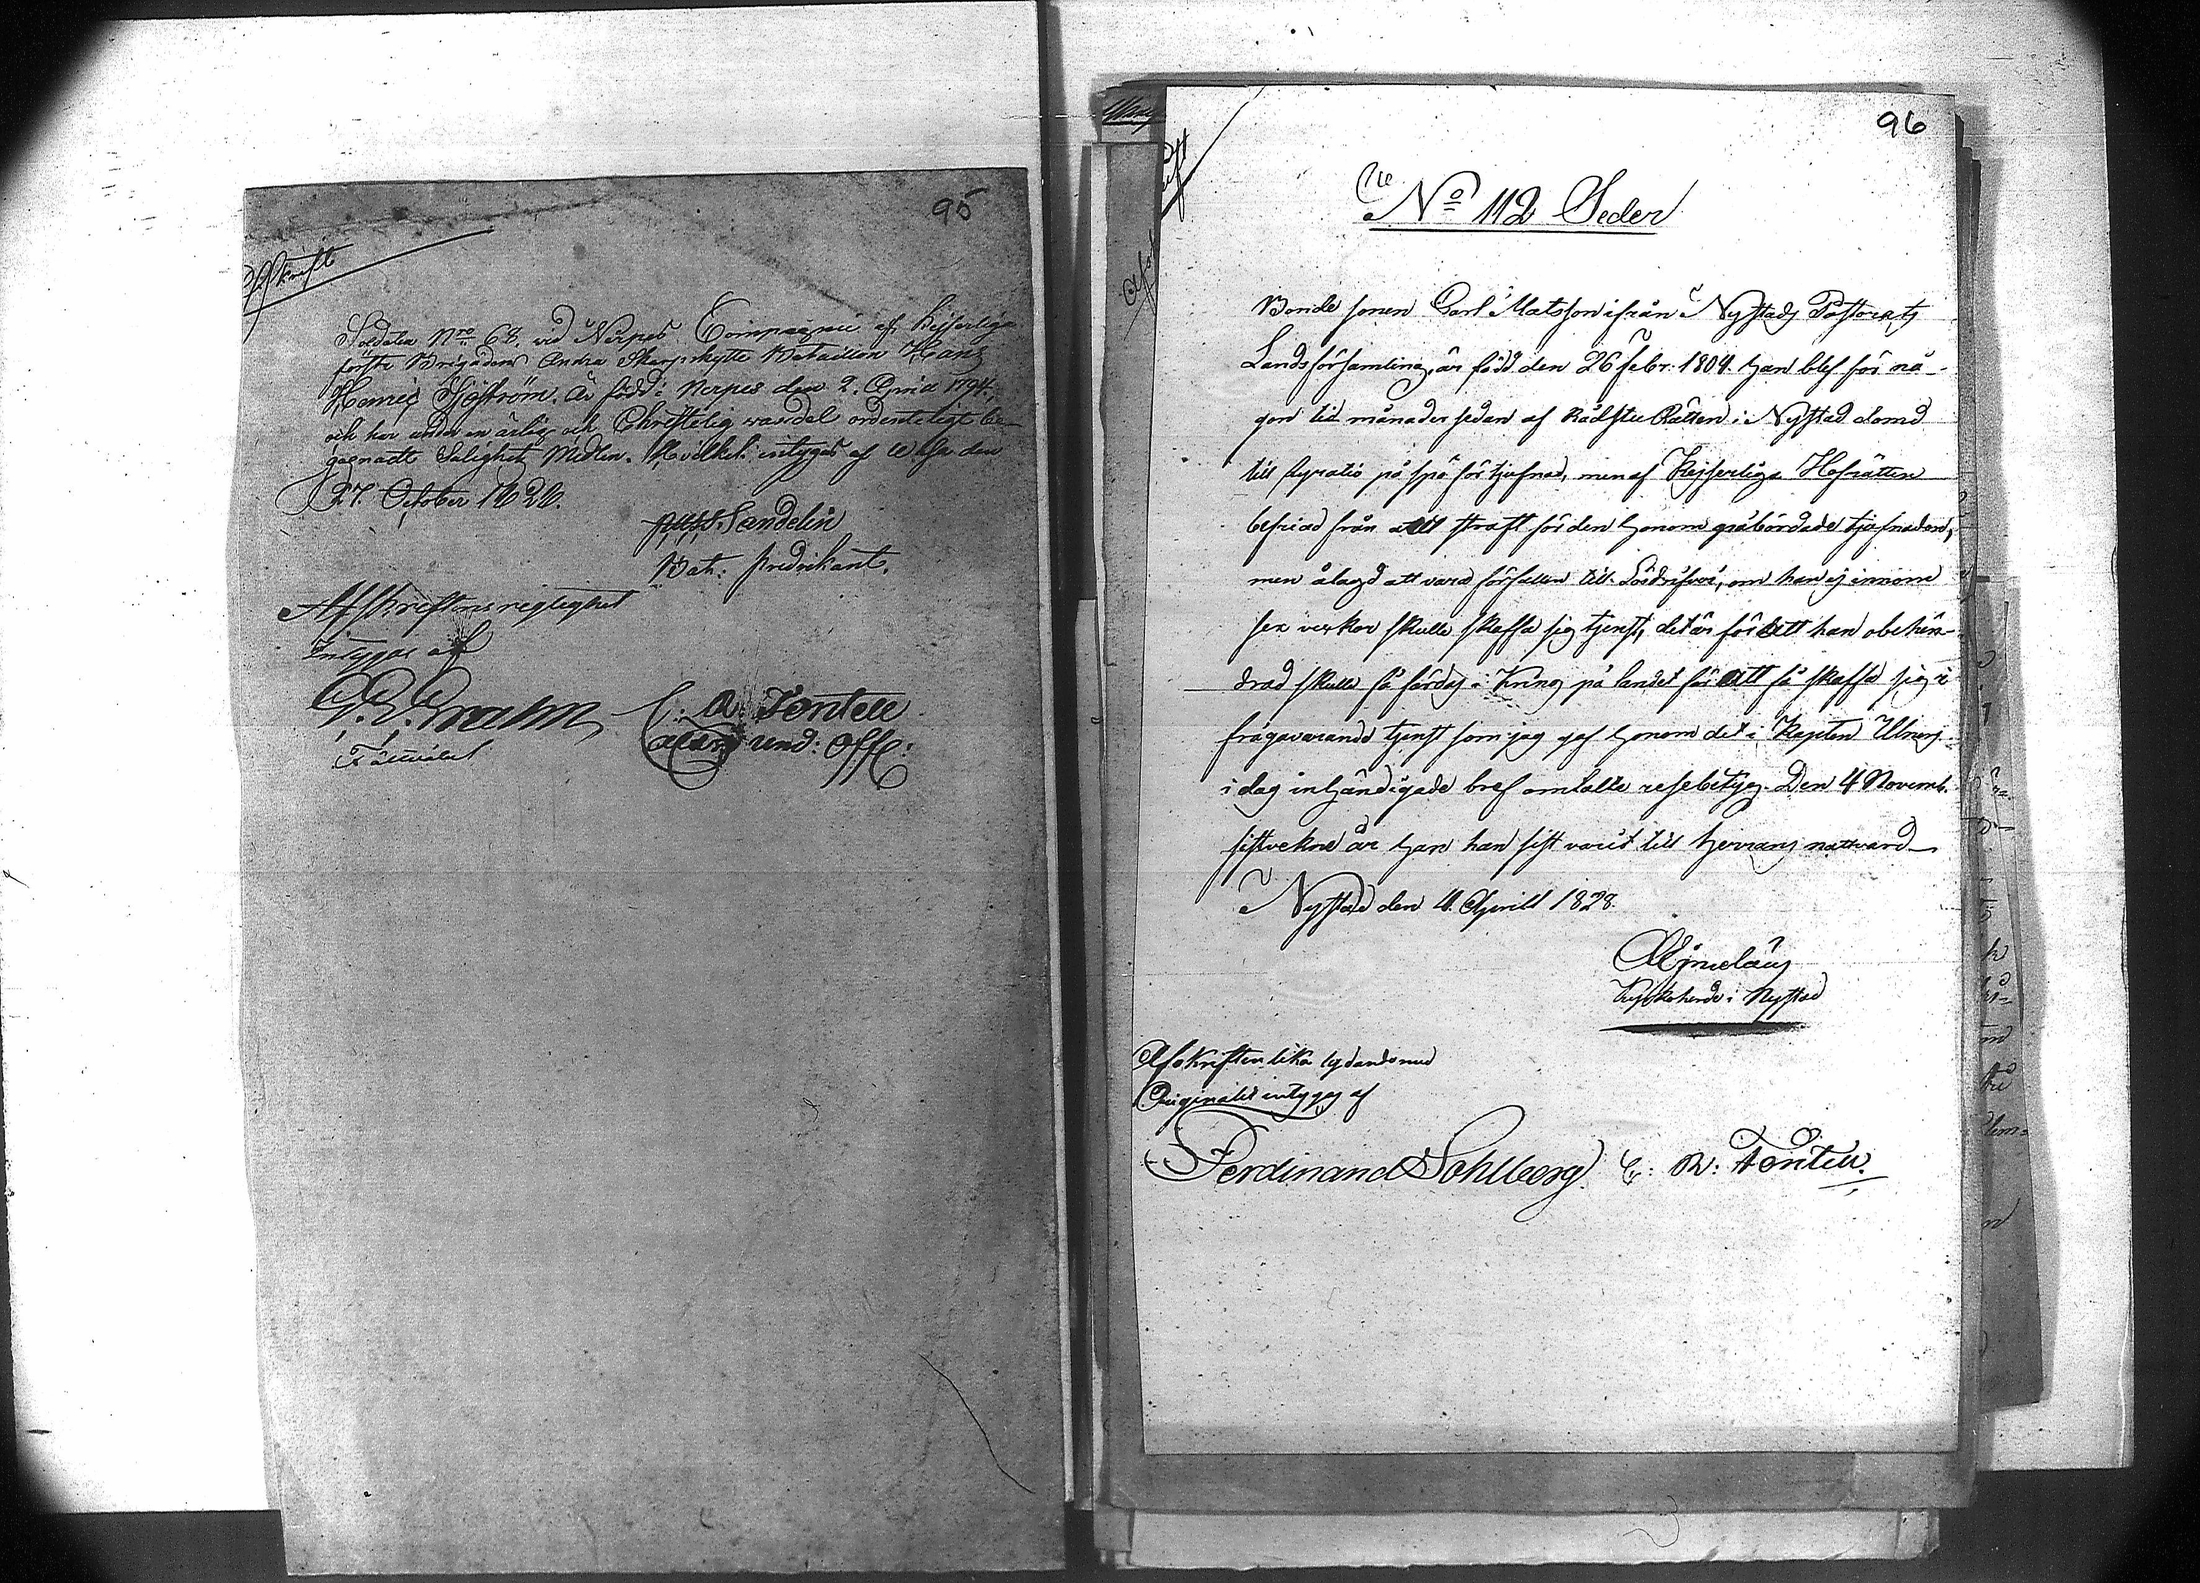 95
Afskrift
Soldaten Nro 68, vid Nerpes Compagnie af Kejserliga
första Brigadens Andra Skarpskytte Bataillon Hans
Henric Sjöström, är född i Nerpes den 2. 1794,
och har under en ärlig och Christelig vandel ordenteligt be-
gagnadt Salighets Medlen. Hvilket intygas af Wasa den
27. October
Sandelin
Bat: predikant.
Afskriftens regtighet
intygas af
C: A Fontell
und: Off:
96
No 112 Seder
Bonde sonen Carl Matsson ifrån Nystads Pastorats
Landsförsamling, är född den 26 Febr. 1804. Han blef för nå-
gon tid månader sedan af Rådstu Rätten i Nystad dömd
till på spö för tjufnad, men af Kejserliga Hofrätten
befriad från allt straff för den honom påbördade tjufnaden,
men ålagd att vara förfallen till, om han ej innom
sex veckor skulle skaffa sig tjenst, det är för att han obehin-
drad skulle få färdas i kring på landet för att få skaffa sig i
frågavarande tjenst som jag gaf honom det i Kapten
i dag inhändigade bref omtalte resebetyg. Den 4 Novemb.
sistvekne år har han sist varit till Herrans nattvard
Nystad den 4. Aprill 1828.
Kyrkoherde i Nystad
Afskriften lika lydande med
Originalet intygas af
Ferdinand Sohlberg. C: A: Fontell.